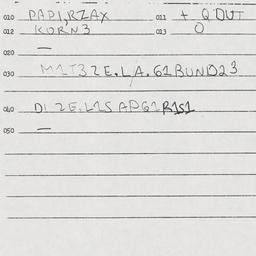 010 PAPI,RZAX 011 + Q OUT
012 KORN3 013 O
020 —
030 M1T3 2E.LA.61BUND23
040 DI 2E.L1SAPG1R1S1
050 —